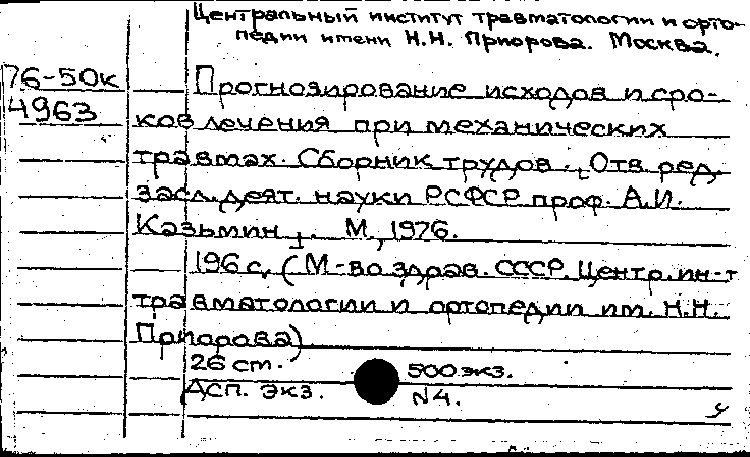 Центральный институт травматологии и орто-
педии имени Н.Н. Приорова. Москва.
76-50к
4963
Прогнозирование исходов и сро-
ков лечения при механических
травмах. Сборник трудов. [Отв. ред.
засл. деят. науки РСФСР проф. А.И.
Казьмин]. М., 1976.
196 с. (М-во здрав. СССР. Центр. ин-т
травматологии и ортопедии им. Н.Н.
Приорова)
26 ст. 500 экз.
Дсп. экз. N4.